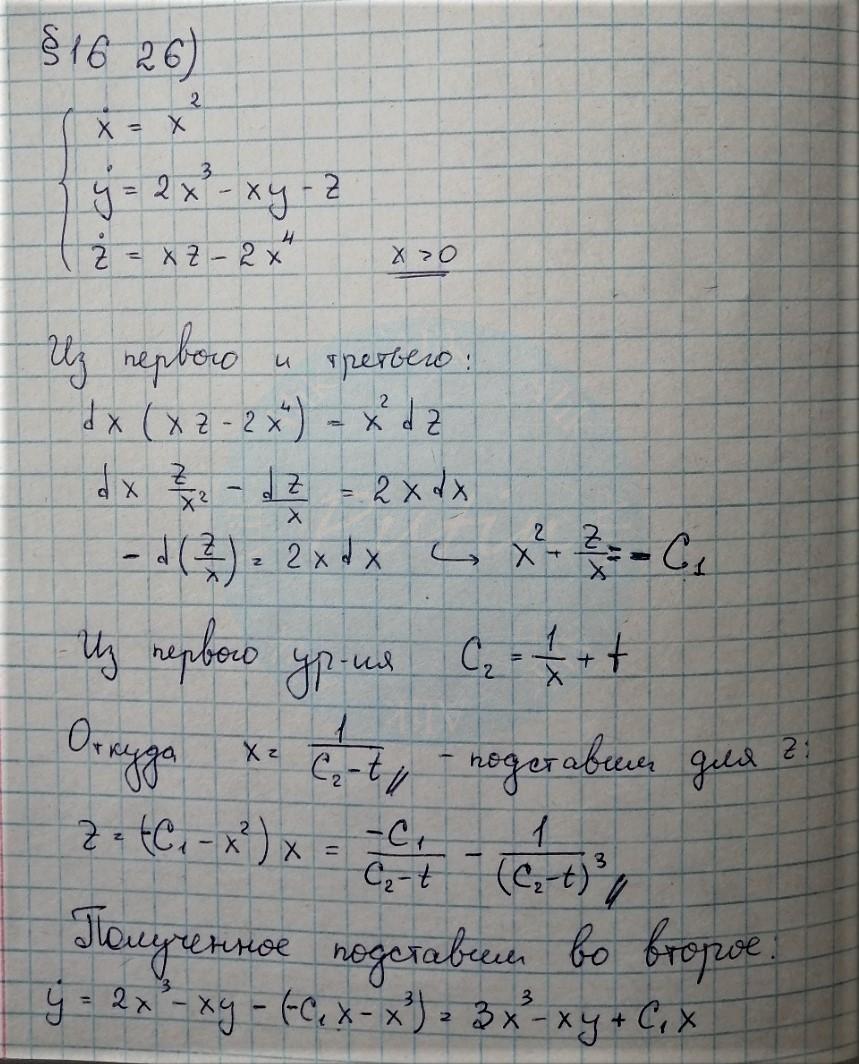 §16 26)
ẋ = x²
ẏ = 2x³ - xy - z
ż = xz - 2x⁴ x > 0
Из первого и третьего:
dx (xz - 2x⁴) = x² dz
dx z/x² - dz/x = 2x dx
- d(z/x) = 2x dx ↪ x² + z/x = - C₁
Из первого ур-ия C₂ = 1/x + t
Откуда x = 1/(C₂ - t) - подставим для z:
z = (-C₁ - x²) x = -C₁/(C₂ - t) - 1/(C₂ - t)³
Полученное подставим во второе:
ẏ = 2x³ - xy - (-C₁x - x³) = 3x³ - xy + C₁x